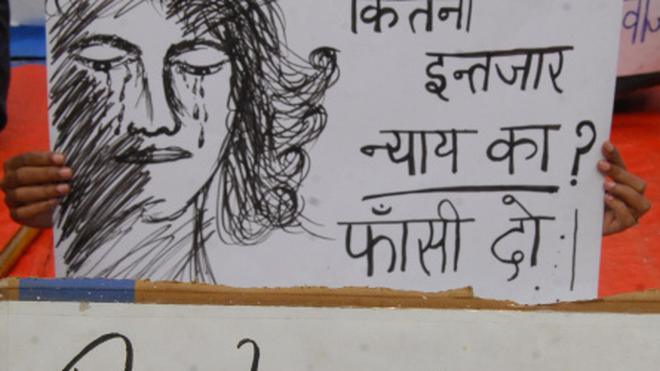 कितना
इन्तजार
न्याय का?
फाँसी दो।